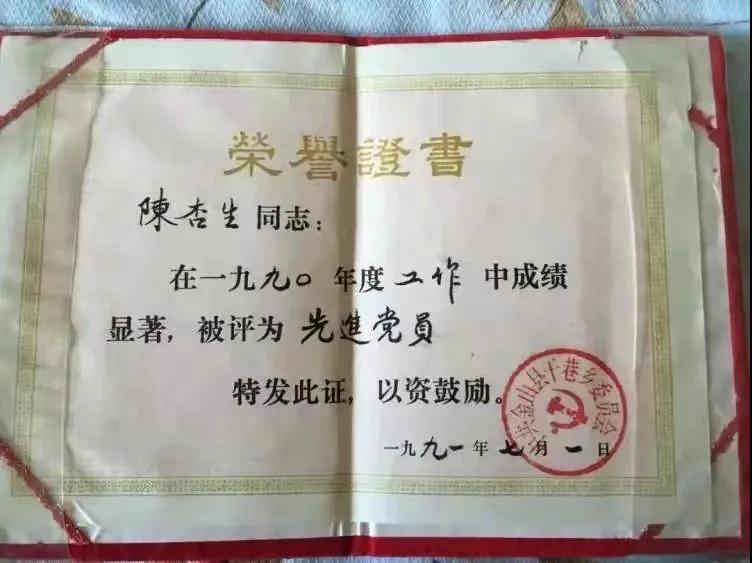 榮譽證書
陳杏生同志：
在一九九〇年度工作中成绩
显著，被评为先進党員
特发此证，以资鼓励。
共金山县干巷乡委员会
一九九一年七月一日